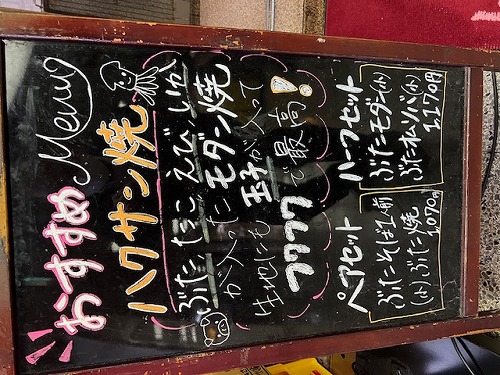 おすすめ Menu
ハクサン焼
ぶた たこ えび いか
が入った モダン焼
生地にも 玉子が入って
フワフワで最高！
ペアセット
ぶたそば1人前
(小)ぶた焼
1070円
ハーフセット
ぶたモダン(小)
ぶたオムソバ(小)
1,170円